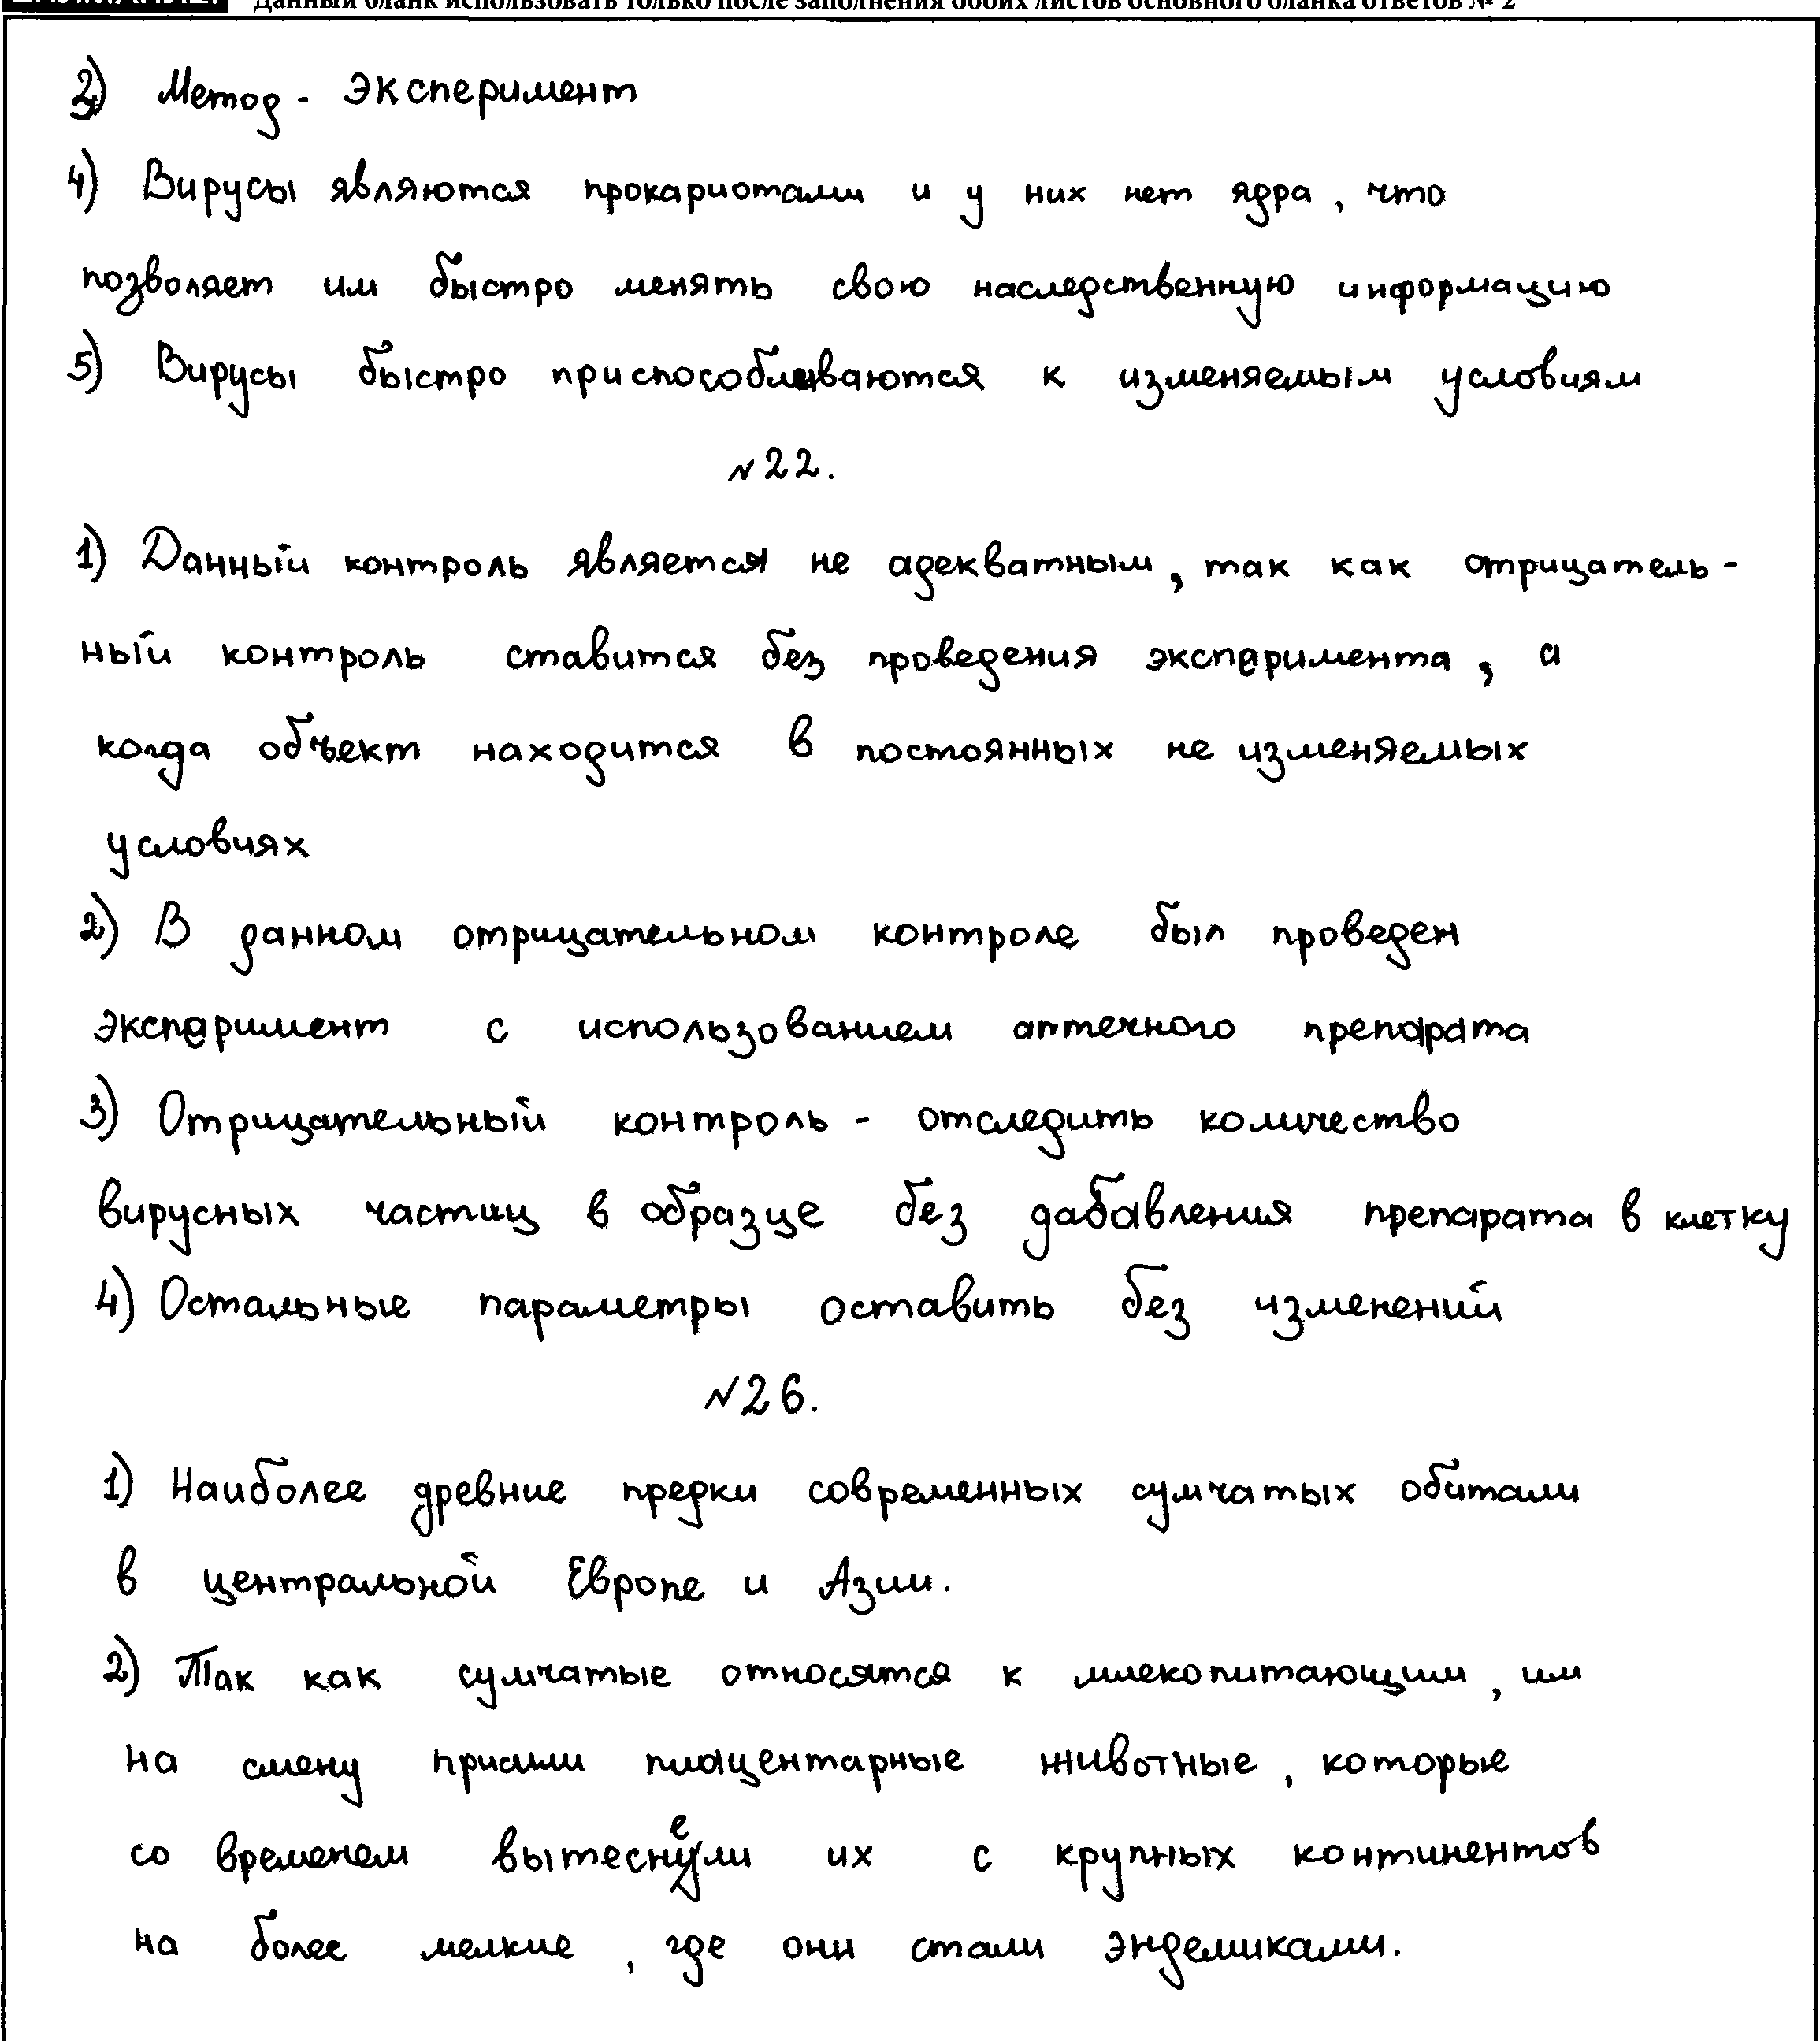 Данный бланк использовать только после заполнения обоих листов основного бланка ответов № 2
3) Метод - эксперимент
4) Вирусы являются прокариотами и у них нет ядра, что
позволяет им быстро менять свою наследственную информацию
5) Вирусы быстро приспосабливаются к изменяемым условиям
№22.
1) Данный контроль является не адекватным, так как отрицатель-
ный контроль ставится без проведения эксперимента, а
когда объект находится в постоянных не изменяемых
условиях
2) В данном отрицательном контроле был проведен
эксперимент с использованием аптечного препарата
3) Отрицательный контроль - отследить количество
вирусных частиц в образце без дабавления препарата в клетку
4) Остальные параметры оставить без изменений
№26.
1) Наиболее древние предки современных сумчатых обитали
в центральной Европе и Азии.
2) Так как сумчатые относятся к млекопитающим, им
на смену пришли плацентарные животные, которые
со временем вытеснели их с крупных континентов
на более мелкие, где они стали эндемиками.